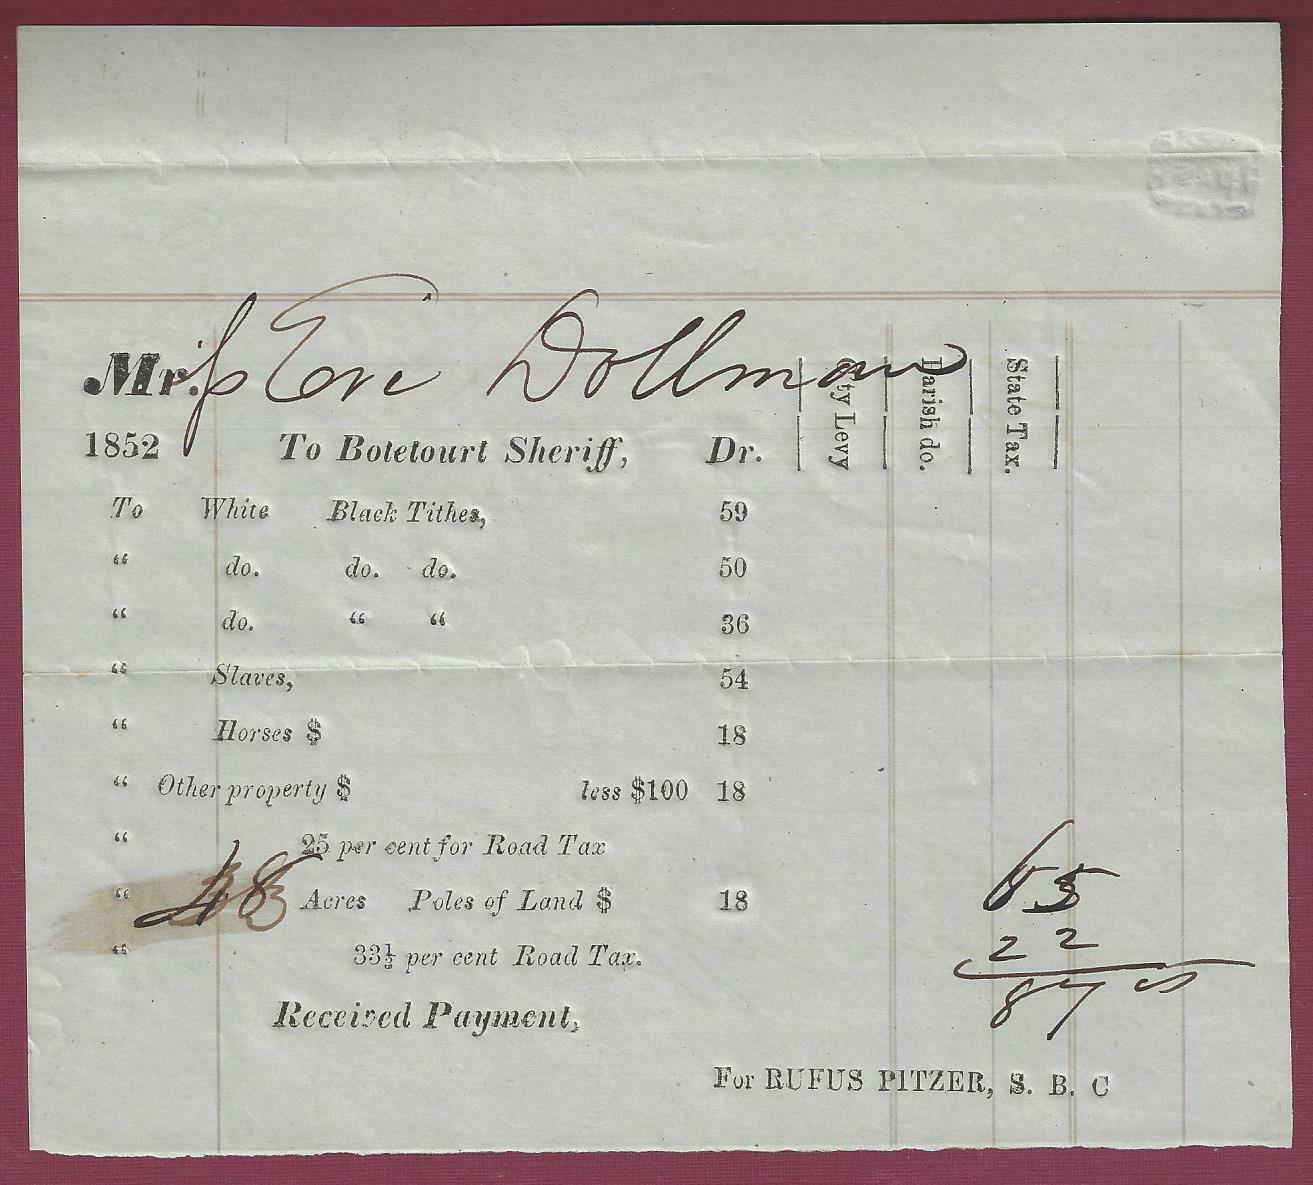 Mrs Evi Dollman
Cty Levy
Parish do.
State Tax.
1852 To Botetourt Sheriff, Dr.
To White Black Tithes, 59
“ do. do. do. 50
“ do. “ “ 36
“ Slaves, 54
“ Horses $ 18
“ Other property $ less $100 18
“ 25 per cent for Road Tax
“ 48 Acres Poles of Land $ 18 65
“ 33⅓ per cent Road Tax. 22
87
Received Payment,
For RUFUS PITZER, S. B. C